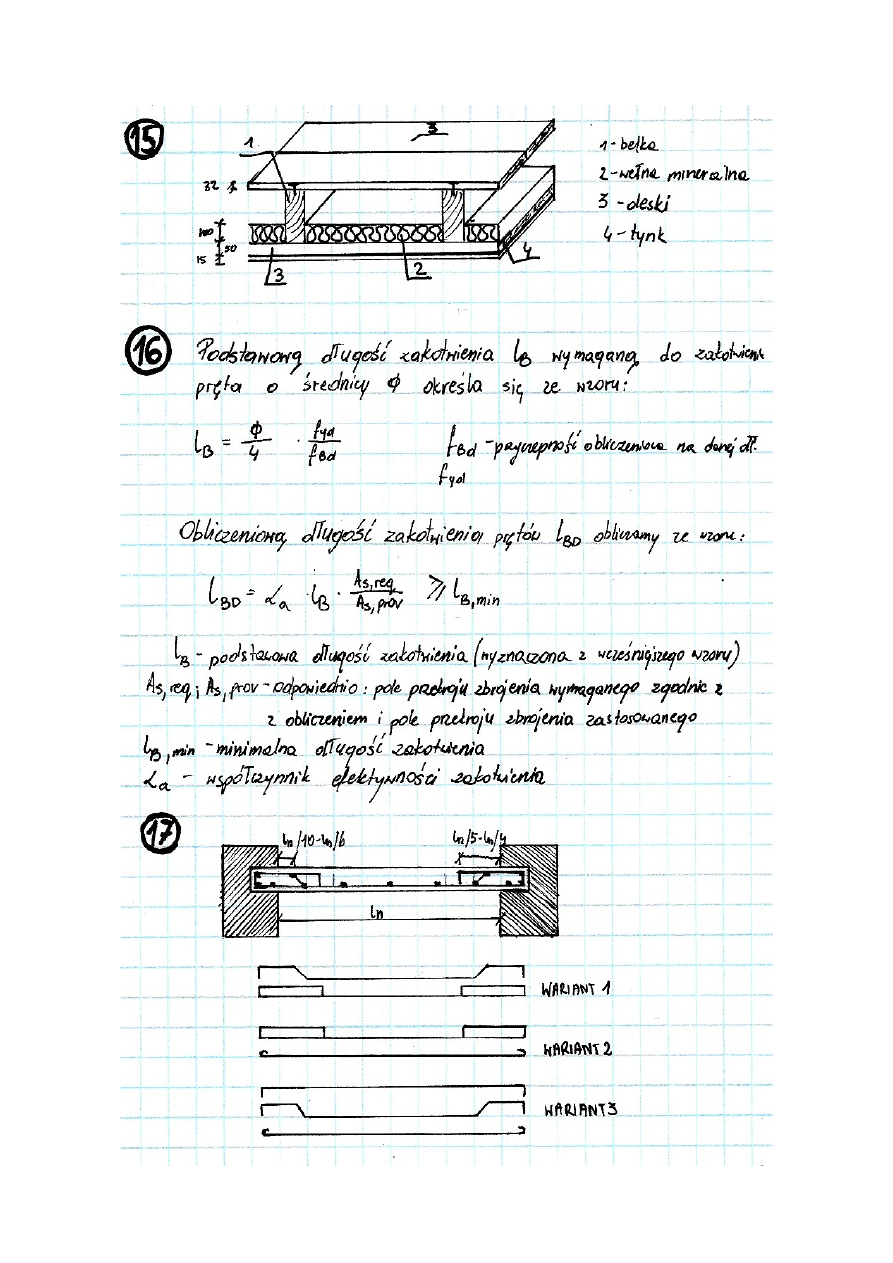 15
1
3
1 - belka
2 - wełna mineralna
3 - deski
4 - tynk
32
100
50
15
3
2
4
16 Podstawową długość zakotwienia lB wymaganą do zakotwieni
pręta o średnicy ϕ określa się ze wzoru:
lB = ϕ/4 · fyd/fBd
fBd - przyczepność obliczeniowa na danej dł.
fyd
Obliczeniową długość zakotwienia prętów lBD obliczamy ze wzoru:
lBD = αa · lB · As,req/As,prov ⩾ lB,min
lB - podstawowa długość zakotwienia (wyznaczona z wcześniejszego wzoru)
As,req i As,prov - odpowiednio: pole przekroju zbrojenia wymaganego zgodnie z
z obliczeniem i pole przekroju zbrojenia zastosowanego
lB,min - minimalna długość zakotwienia
αa - współczynnik efektywności zakotwienia
17
ln/10-ln/6
ln/5-ln/4
ln
WARIANT 1
WARIANT 2
WARIANT 3